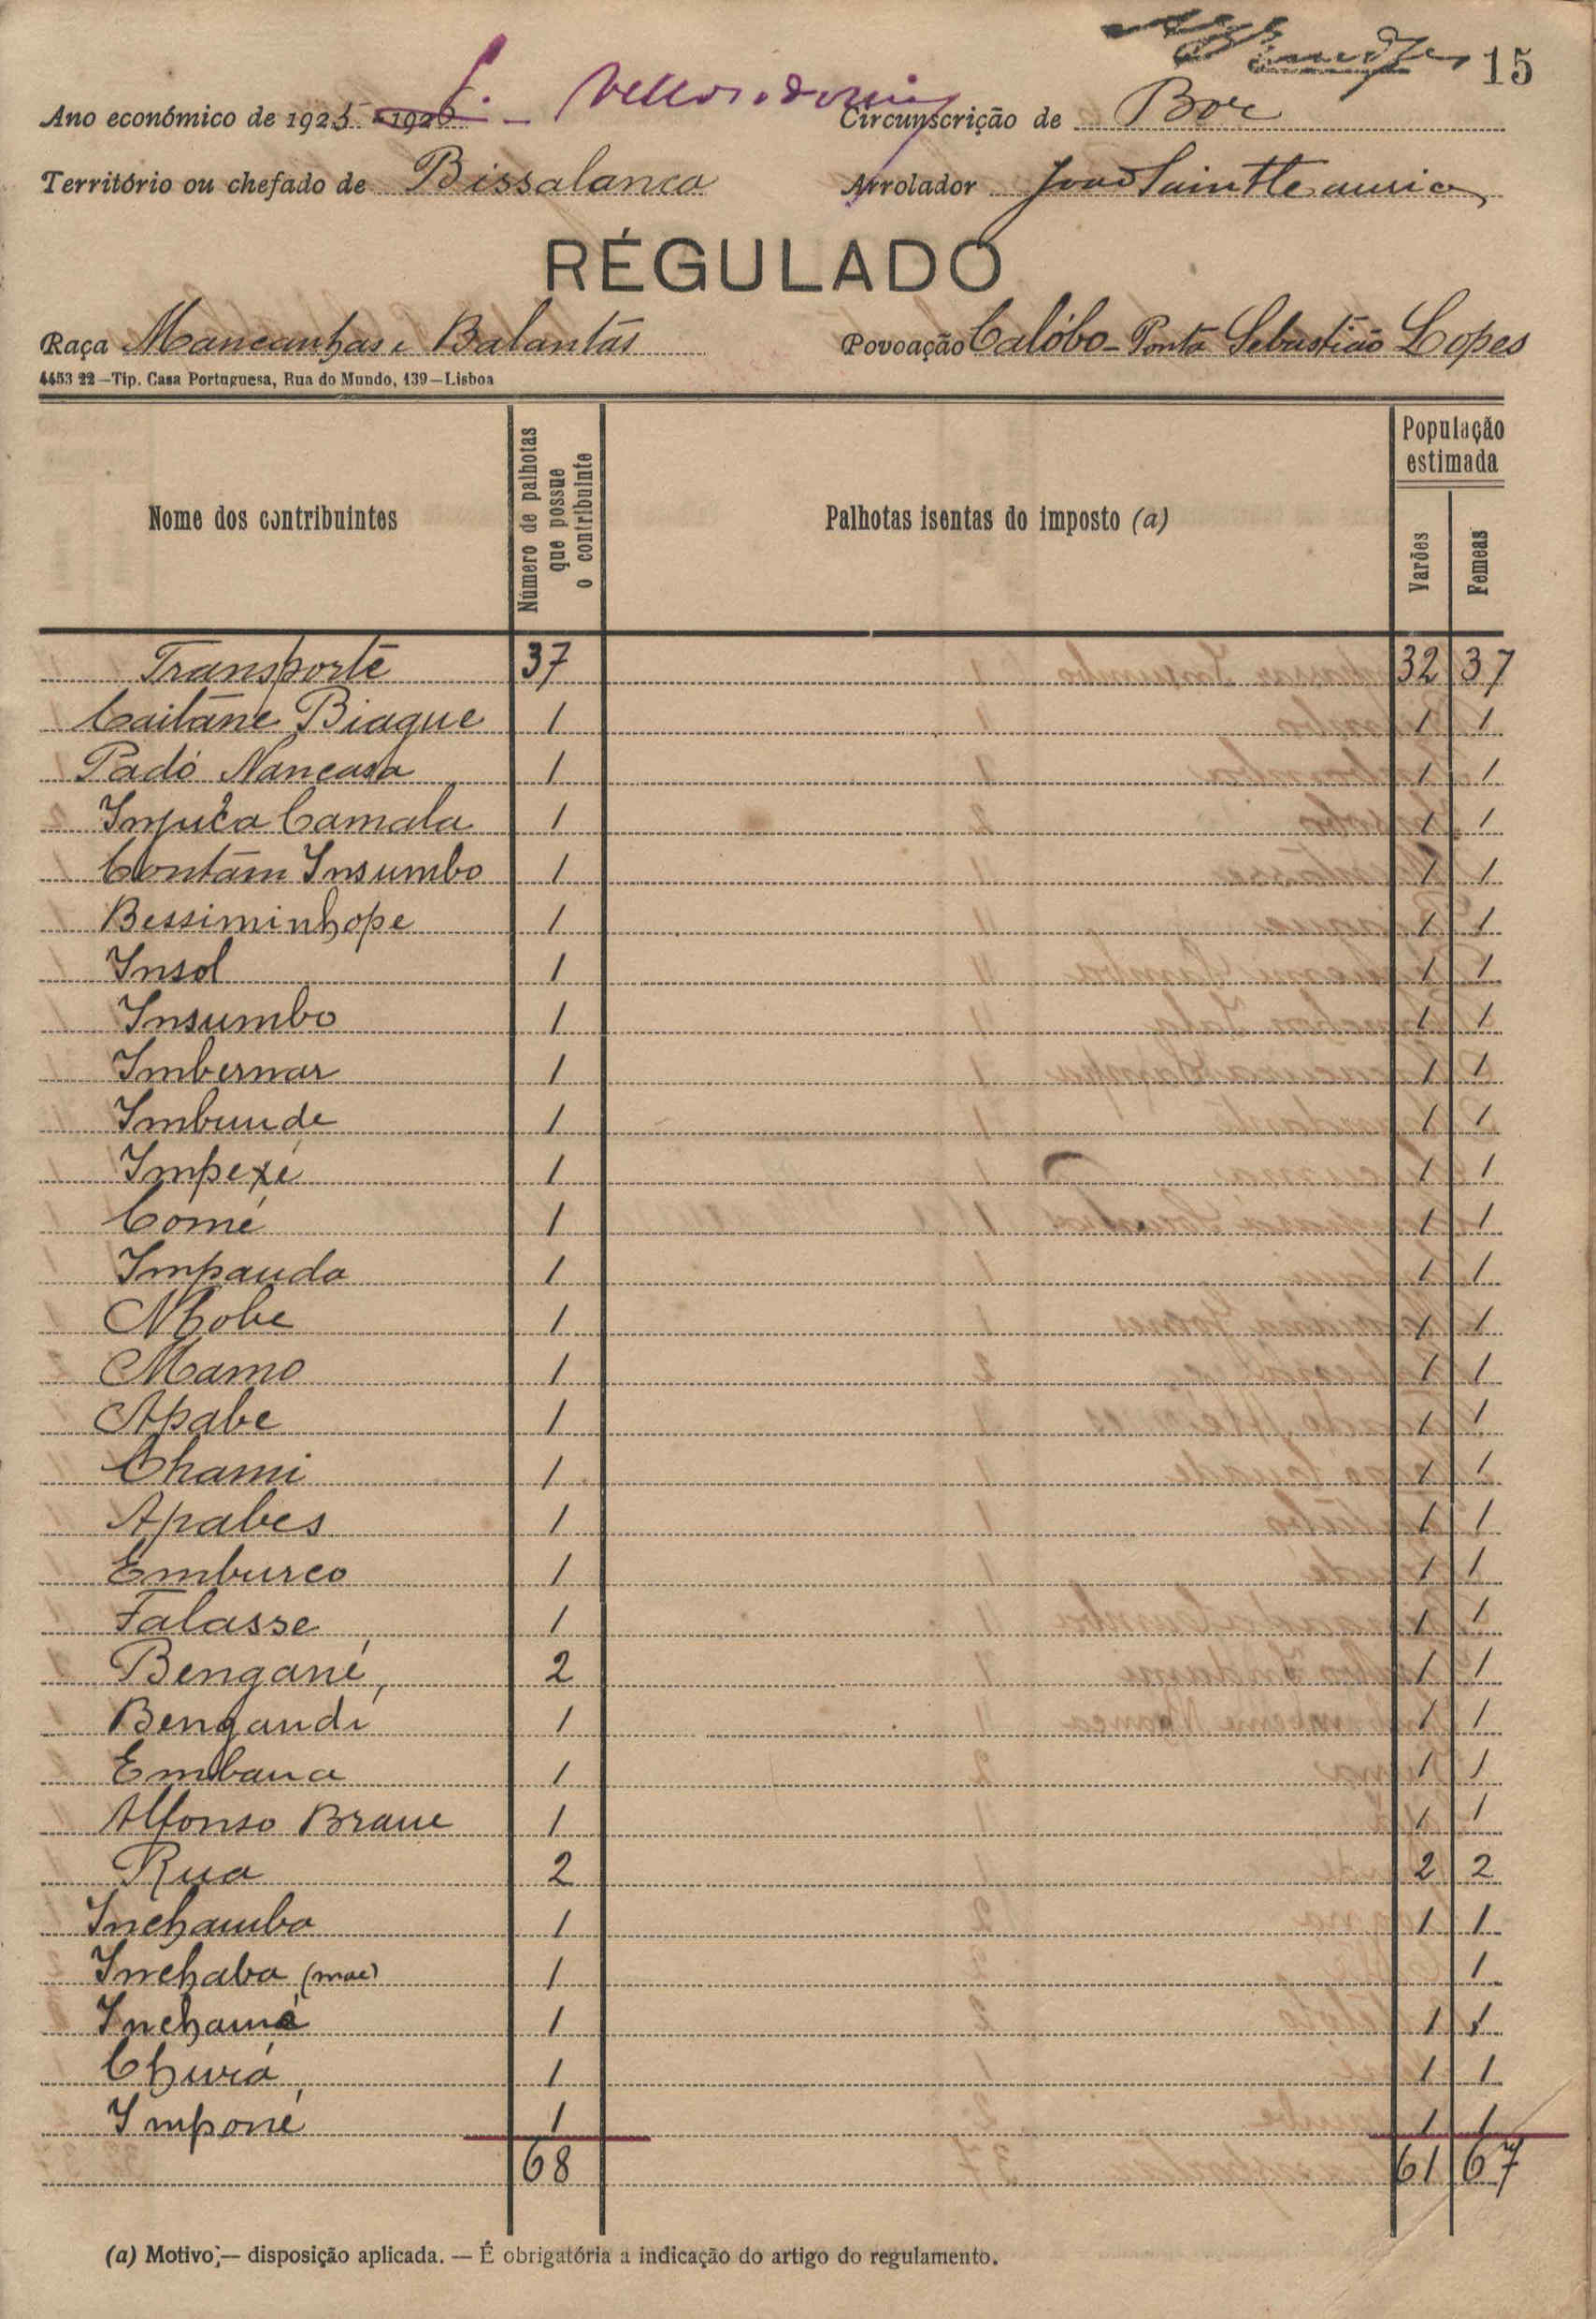 15
Ano económico de 1925-1926
Circunscrição de Bor
Território ou chefado de Bissalanca
Arrolador João
RÉGULADO
Raça Mancanhas e Balantas
Povoação Calóbo - Ponta Sebastião Lopes
4453 22 — Tip. Casa Portuguesa, Rua do Mundo, 139 — Lisboa
Nome dos contribuintes
Número de palhotas que possue o contribuinte
Palhotas isentas do imposto (a)
População estimada
Varões
Femeas
Transporte 37 32 37
Caitane Biague 1 1 1
Padó Nancasa 1 1 1
Camala 1 1 1
Contam Insumbo 1 1 1
Bessiminhope 1 1 1
Insol 1 1 1
Insumbo 1 1 1
Imbernar 1 1 1
Imbunde 1 1 1
Impexé 1 1 1
Comé 1 1 1
Impauda 1 1 1
Nhobe 1 1 1
Mamo 1 1 1
Apabe 1 1 1
Chami 1 1 1
Apabes 1 1 1
Emburco 1 1 1
Falasse 1 1 1
Bengané 2 1 1
Bengandi 1 1 1
Embana 1 1 1
Alfonso Braue 1 1 1
Rua 2 2 2
Inchamba 1 1 1
Inchaba (mae) 1 1
Inchamá 1 1 1
Churá 1 1 1
Imponé 1 1 1
68 61 67
(a) Motivo;— disposição aplicada. — É obrigatória a indicação do artigo do regulamento.